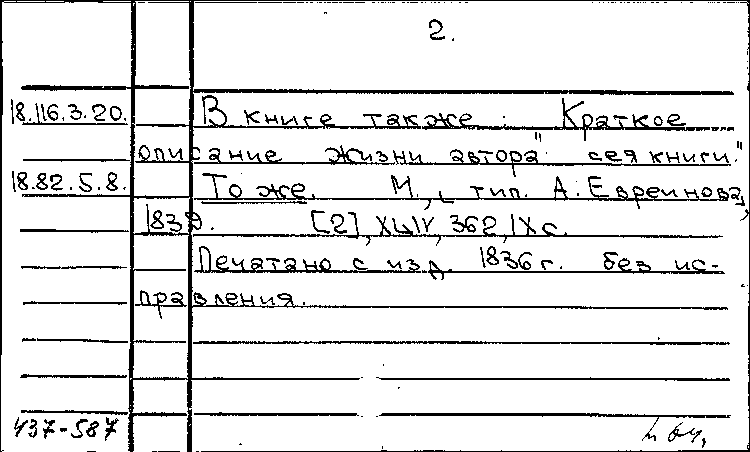 2.
18.116.3.20. В книге также: Краткое
описание жизни автора" сея книги."
18.82.5.8. То же. М., тип. А. Евреинова,
183 [2], 362, IX с.
Печатано с изд. 1836 г. без ис-
правления.
437-587